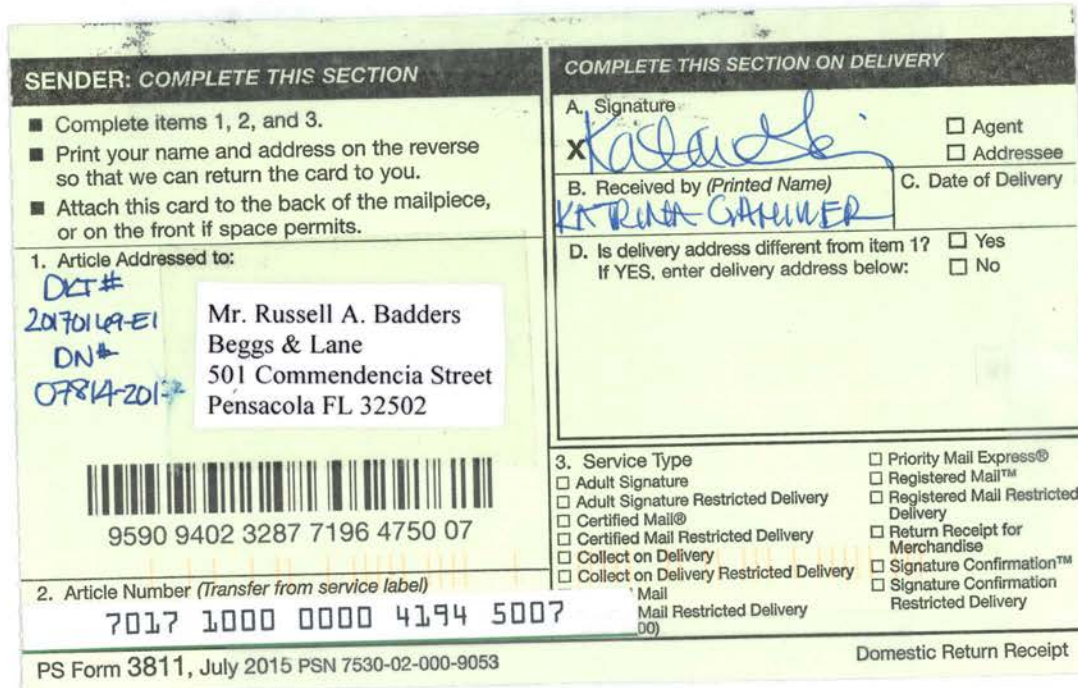 SENDER: COMPLETE THIS SECTION
■ Complete items 1, 2, and 3.
■ Print your name and address on the reverse
so that we can return the card to you.
■ Attach this card to the back of the mailpiece,
or on the front if space permits.
1. Article Addressed to:
DKT#
20170169-EI
DN#
07814-201
Mr. Russell A. Badders
Beggs & Lane
501 Commendencia Street
Pensacola FL 32502
9590 9402 3287 7196 4750 07
2. Article Number (Transfer from service label)
7017 1000 0000 4194 5007
PS Form 3811, July 2015 PSN 7530-02-000-9053
COMPLETE THIS SECTION ON DELIVERY
A. Signature
X
☐ Agent
☐ Addressee
B. Received by (Printed Name)
KATRINA
C. Date of Delivery
D. Is delivery address different from item 1? ☐ Yes
If YES, enter delivery address below: ☐ No
3. Service Type
☐ Adult Signature
☐ Adult Signature Restricted Delivery
☐ Certified Mail®
☐ Certified Mail Restricted Delivery
☐ Collect on Delivery
☐ Collect on Delivery Restricted Delivery
Mail
Mail Restricted Delivery
00)
☐ Priority Mail Express®
☐ Registered Mail™
☐ Registered Mail Restricted
Delivery
☐ Return Receipt for
Merchandise
☐ Signature Confirmation™
☐ Signature Confirmation
Restricted Delivery
Domestic Return Receipt